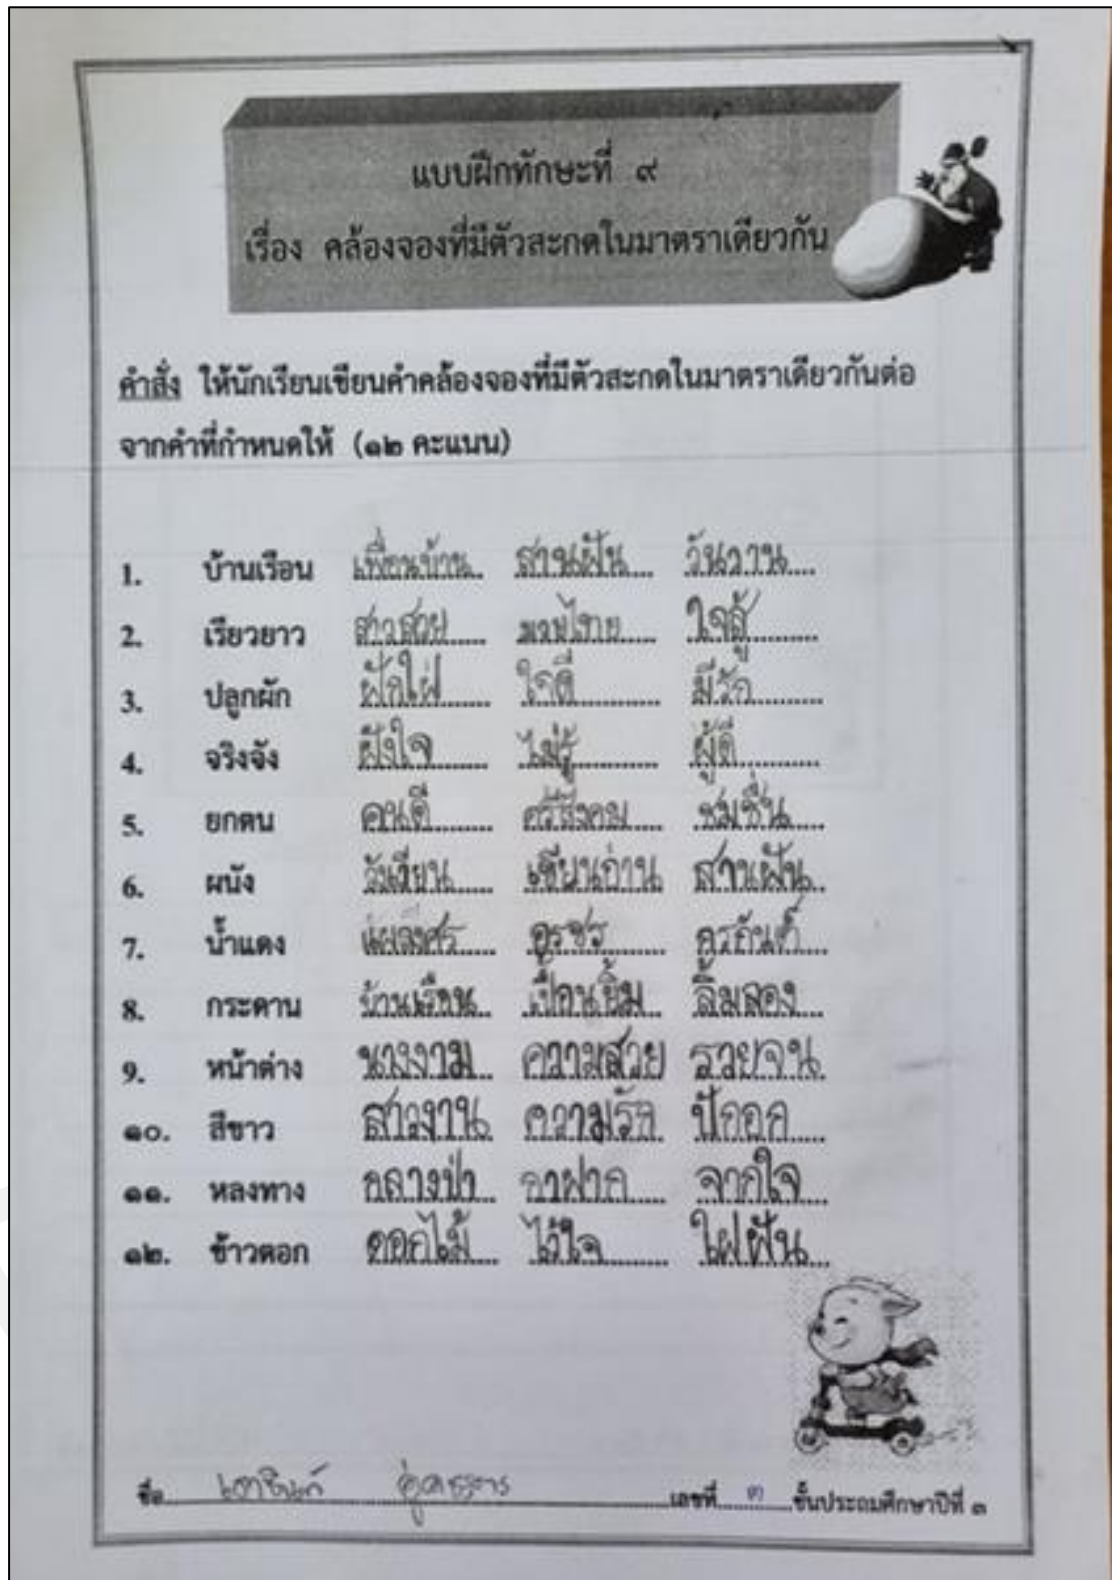 แบบฝึกทักษะที่ ๙
เรื่อง คล้องจองที่มีตัวสะกดในมาตราเดียวกัน
คำสั่ง ให้นักเรียนเขียนคำคล้องจองที่มีตัวสะกดในมาตราเดียวกันต่อ
จากคำที่กำหนดให้ (๑๒ คะแนน)
1. บ้านเรือน เพื่อนบ้าน สานฝัน วันวาน
2. เรียวยาว สาวสวย มวยไทย ใจสู้
3. ปลูกผัก ฝักใฝ่ ใจดี มีรัก
4. จริงจัง ฝังใจ ไม่รู้ ผู้ดี
5. ยกตน คนดี ศรีสังคม ชมชื่น
6. ผนัง วังเวียน เขียนอ่าน สานฝัน
7. น้ำแดง
8. กระดาน บ้านเรือน เปื้อนยิ้ม ลิ้มลอง
9. หน้าต่าง นางงาม ความสวย รวยจน
๑๐. สีขาว สาวงาน ความรัก ปักอก
๑๑. หลงทาง กลางป่า กาฝาก จากใจ
๑๒. ข้าวตอก ดอกไม้ ไว้ใจ ใฝ่ฝัน
ชื่อ เลขที่ ๓ ชั้นประถมศึกษาปีที่ ๓